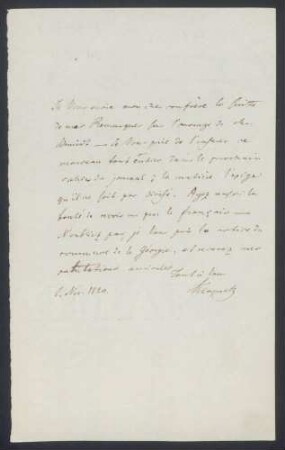 Je Vous envoie mon cher confrère la suite
de mes Remarques sur l'ouvrage de Mr
Schmidt — Je Vous prie de l'insérer ce
morceau tout entier, dans le prochain
cahier du journal; la matière l'exige
qu'il ne soit pas divisé. Ayez aussi la
bonté de revoir un peu le français —
N'oubliez pas, je Vous prie la notice du
commerce de la Géorgie, et recevez mes
salutations amicales
Tout à Vous
6. Nov. 1824. Klaproth